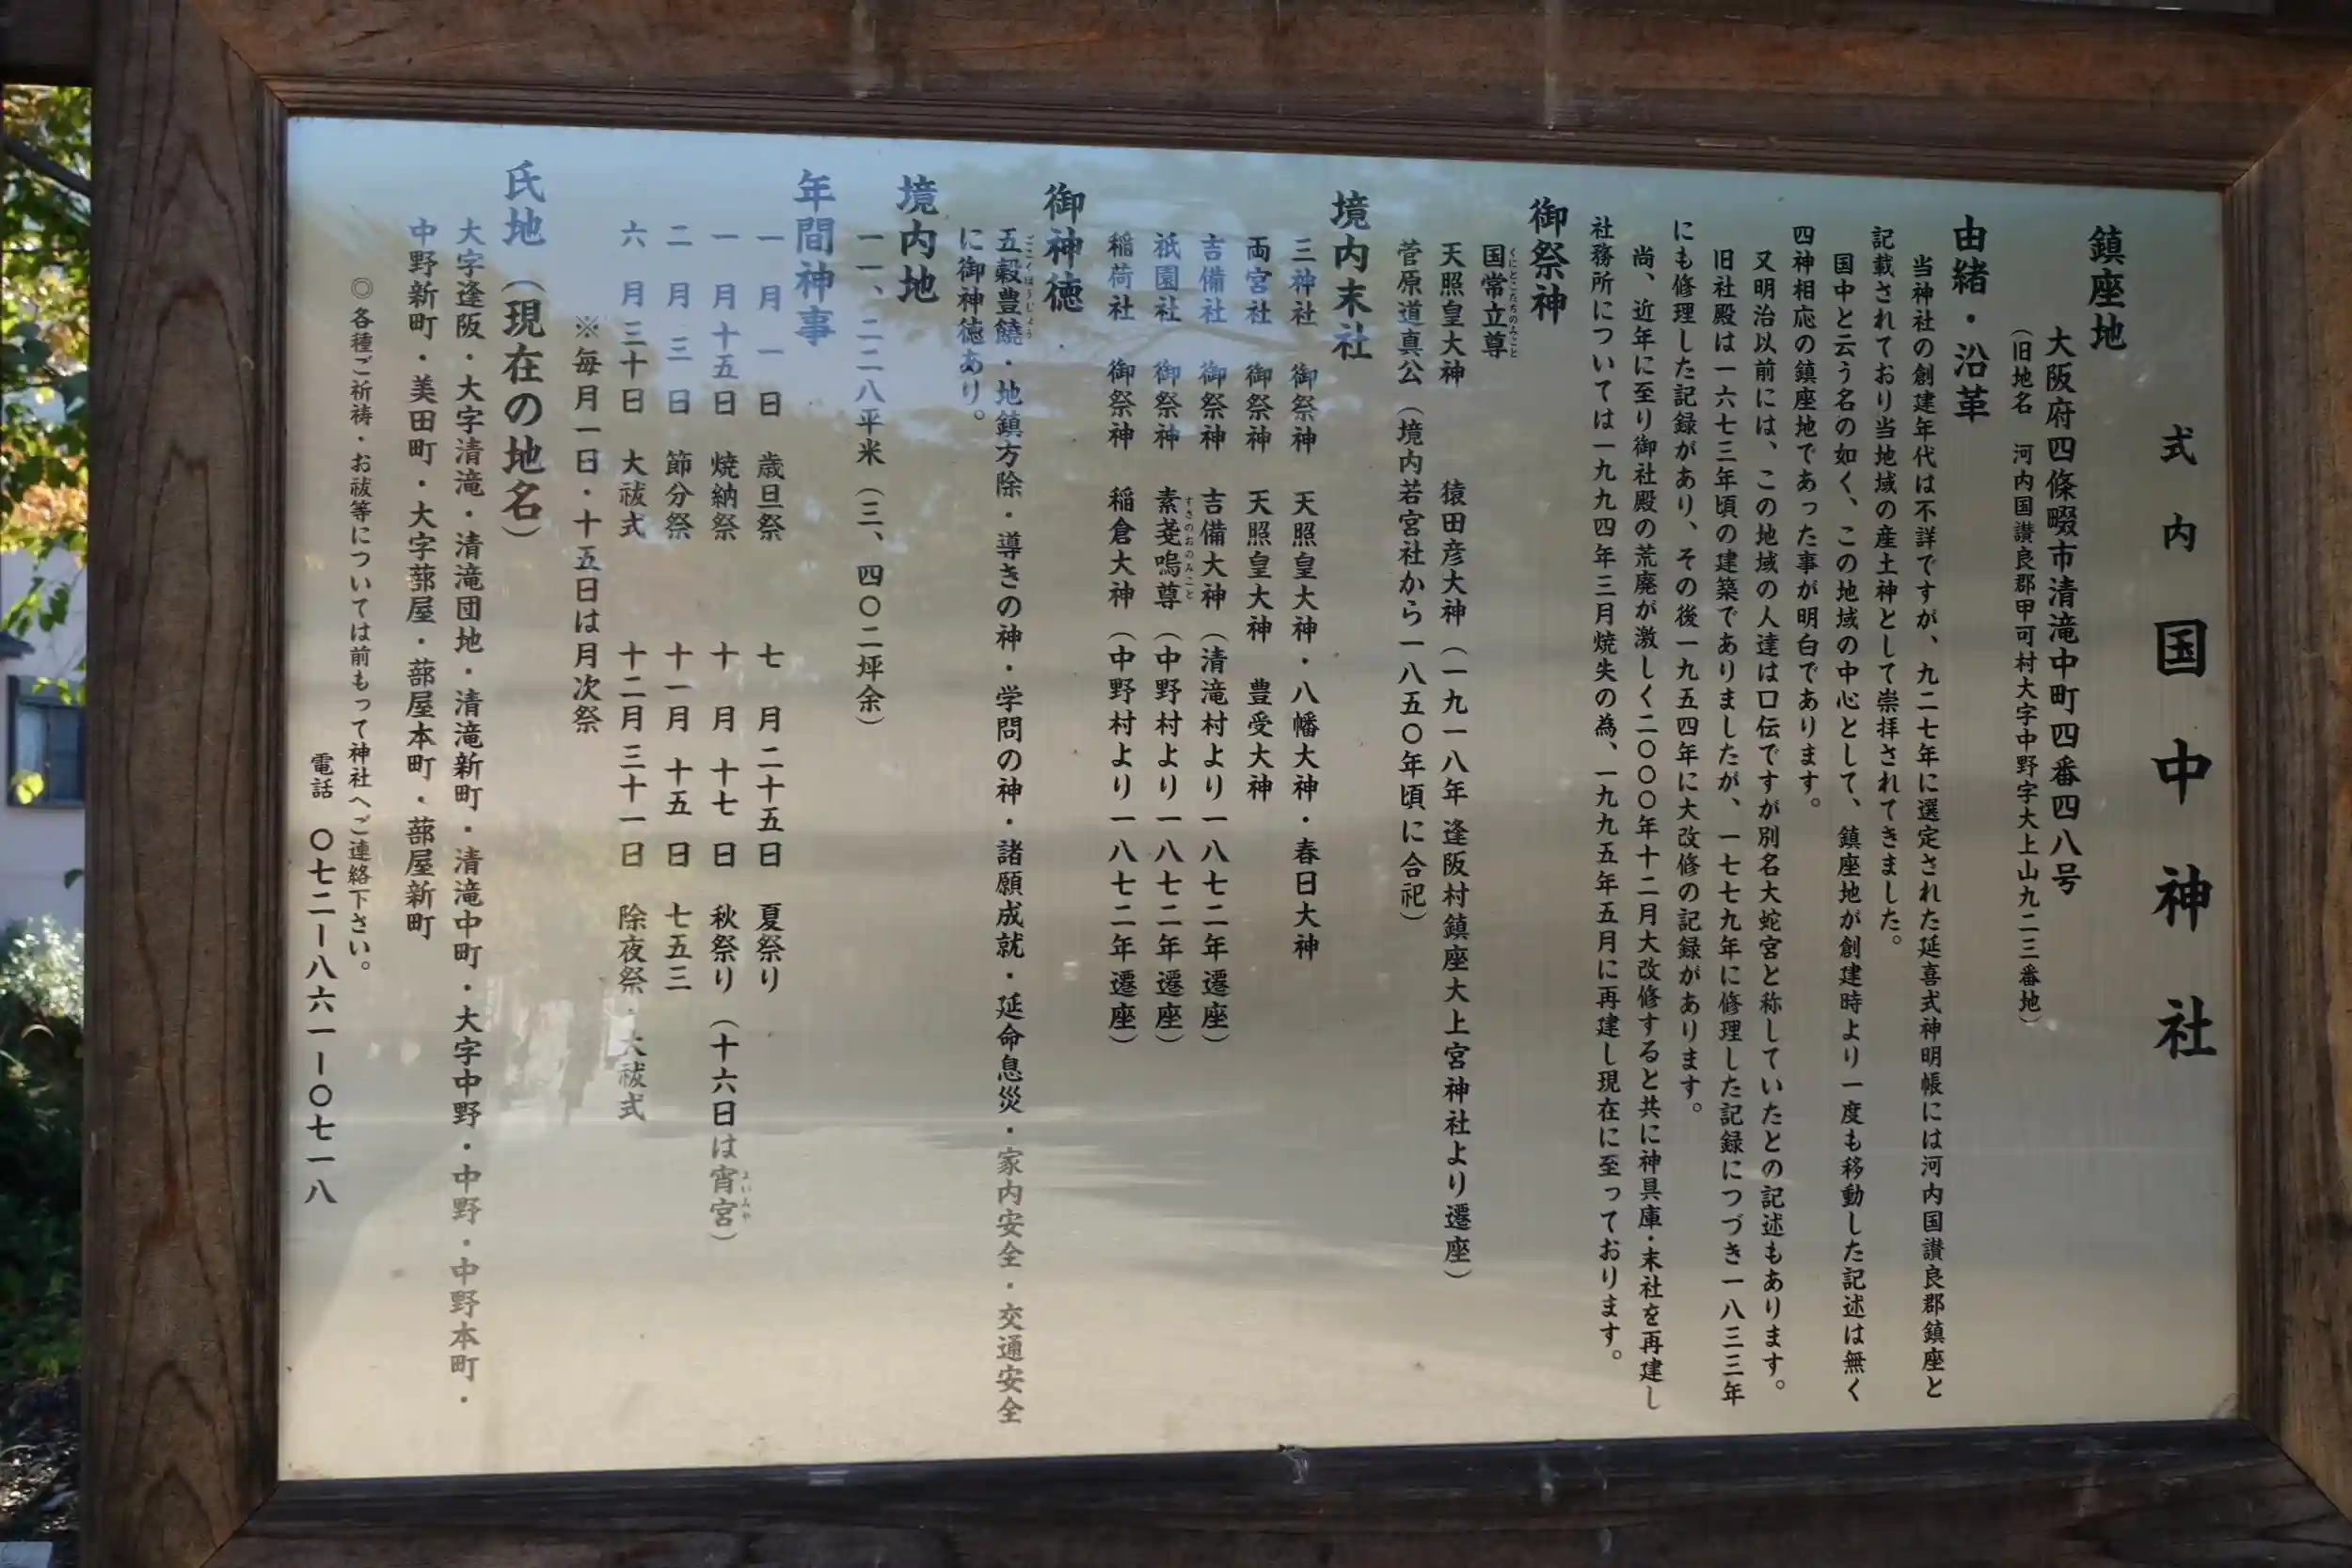 式内 国中神社
鎮座地
大阪府四條畷市清滝中町四番四八号
（旧地名 河内国讃良郡甲可村大字中野字大上山九二三番地）
由緒・沿革
当神社の創建年代は不詳ですが、九二七年に選定された延喜式神明帳には河内国讃良郡鎮座と
記載されており当地域の産土神として崇拝されてきました。
国中と云う名の如く、この地域の中心として、鎮座地が創建時より一度も移動した記述は無く
四神相応の鎮座地であった事が明白であります。
又明治以前には、この地域の人達は口伝ですが別名大蛇宮と称していたとの記述もあります。
旧社殿は一六七三年頃の建築でありましたが、一七七九年に修理した記録につづき一八三三年
にも修理した記録があり、その後一九五四年に大改修の記録があります。
尚、近年に至り御社殿の荒廃が激しく二〇〇〇年十二月大改修すると共に神具庫・末社を再建し
社務所については一九九四年三月焼失の為、一九九五年五月に再建し現在に至っております。
御祭神
国常立尊
くにとこたちのみこと
天照皇大神 猿田彦大神（一九一八年 逢阪村鎮座大上宮神社より遷座）
菅原道真公（境内若宮社から一八五〇年頃に合祀）
境内末社
三神社 御祭神 天照皇大神・八幡大神・春日大神
両宮社 御祭神 天照皇大神 豊受大神
吉備社 御祭神 吉備大神（清滝村より一八七二年遷座）
祇園社 御祭神 素戔嗚尊（中野村より一八七二年遷座）
すさのおのみこと
稲荷社 御祭神 稲倉大神（中野村より一八七二年遷座）
御神徳
五穀豊饒・地鎮方除・導きの神・学問の神・諸願成就・延命息災・家内安全・交通安全
ごこくほうじょう
に御神徳あり。
境内地
一一、二二八平米（三、四〇二坪余）
年間神事
一月一日 歳旦祭 七月二十五日 夏祭り
一月十五日 焼納祭 十月十七日 秋祭り（十六日は宵宮）
よいみや
二月三日 節分祭 十一月十五日 七五三
六月三十日 大祓式 十二月三十一日 除夜祭・大祓式
※毎月一日・十五日は月次祭
氏地（現在の地名）
大字逢阪・大字清滝・清滝団地・清滝新町・清滝中町・大字中野・中野・中野本町・
中野新町・美田町・大字蔀屋・蔀屋本町・蔀屋新町
◎各種ご祈祷・お祓等については前もって神社へご連絡下さい。
電話 〇七二ー八六一ー〇七一八